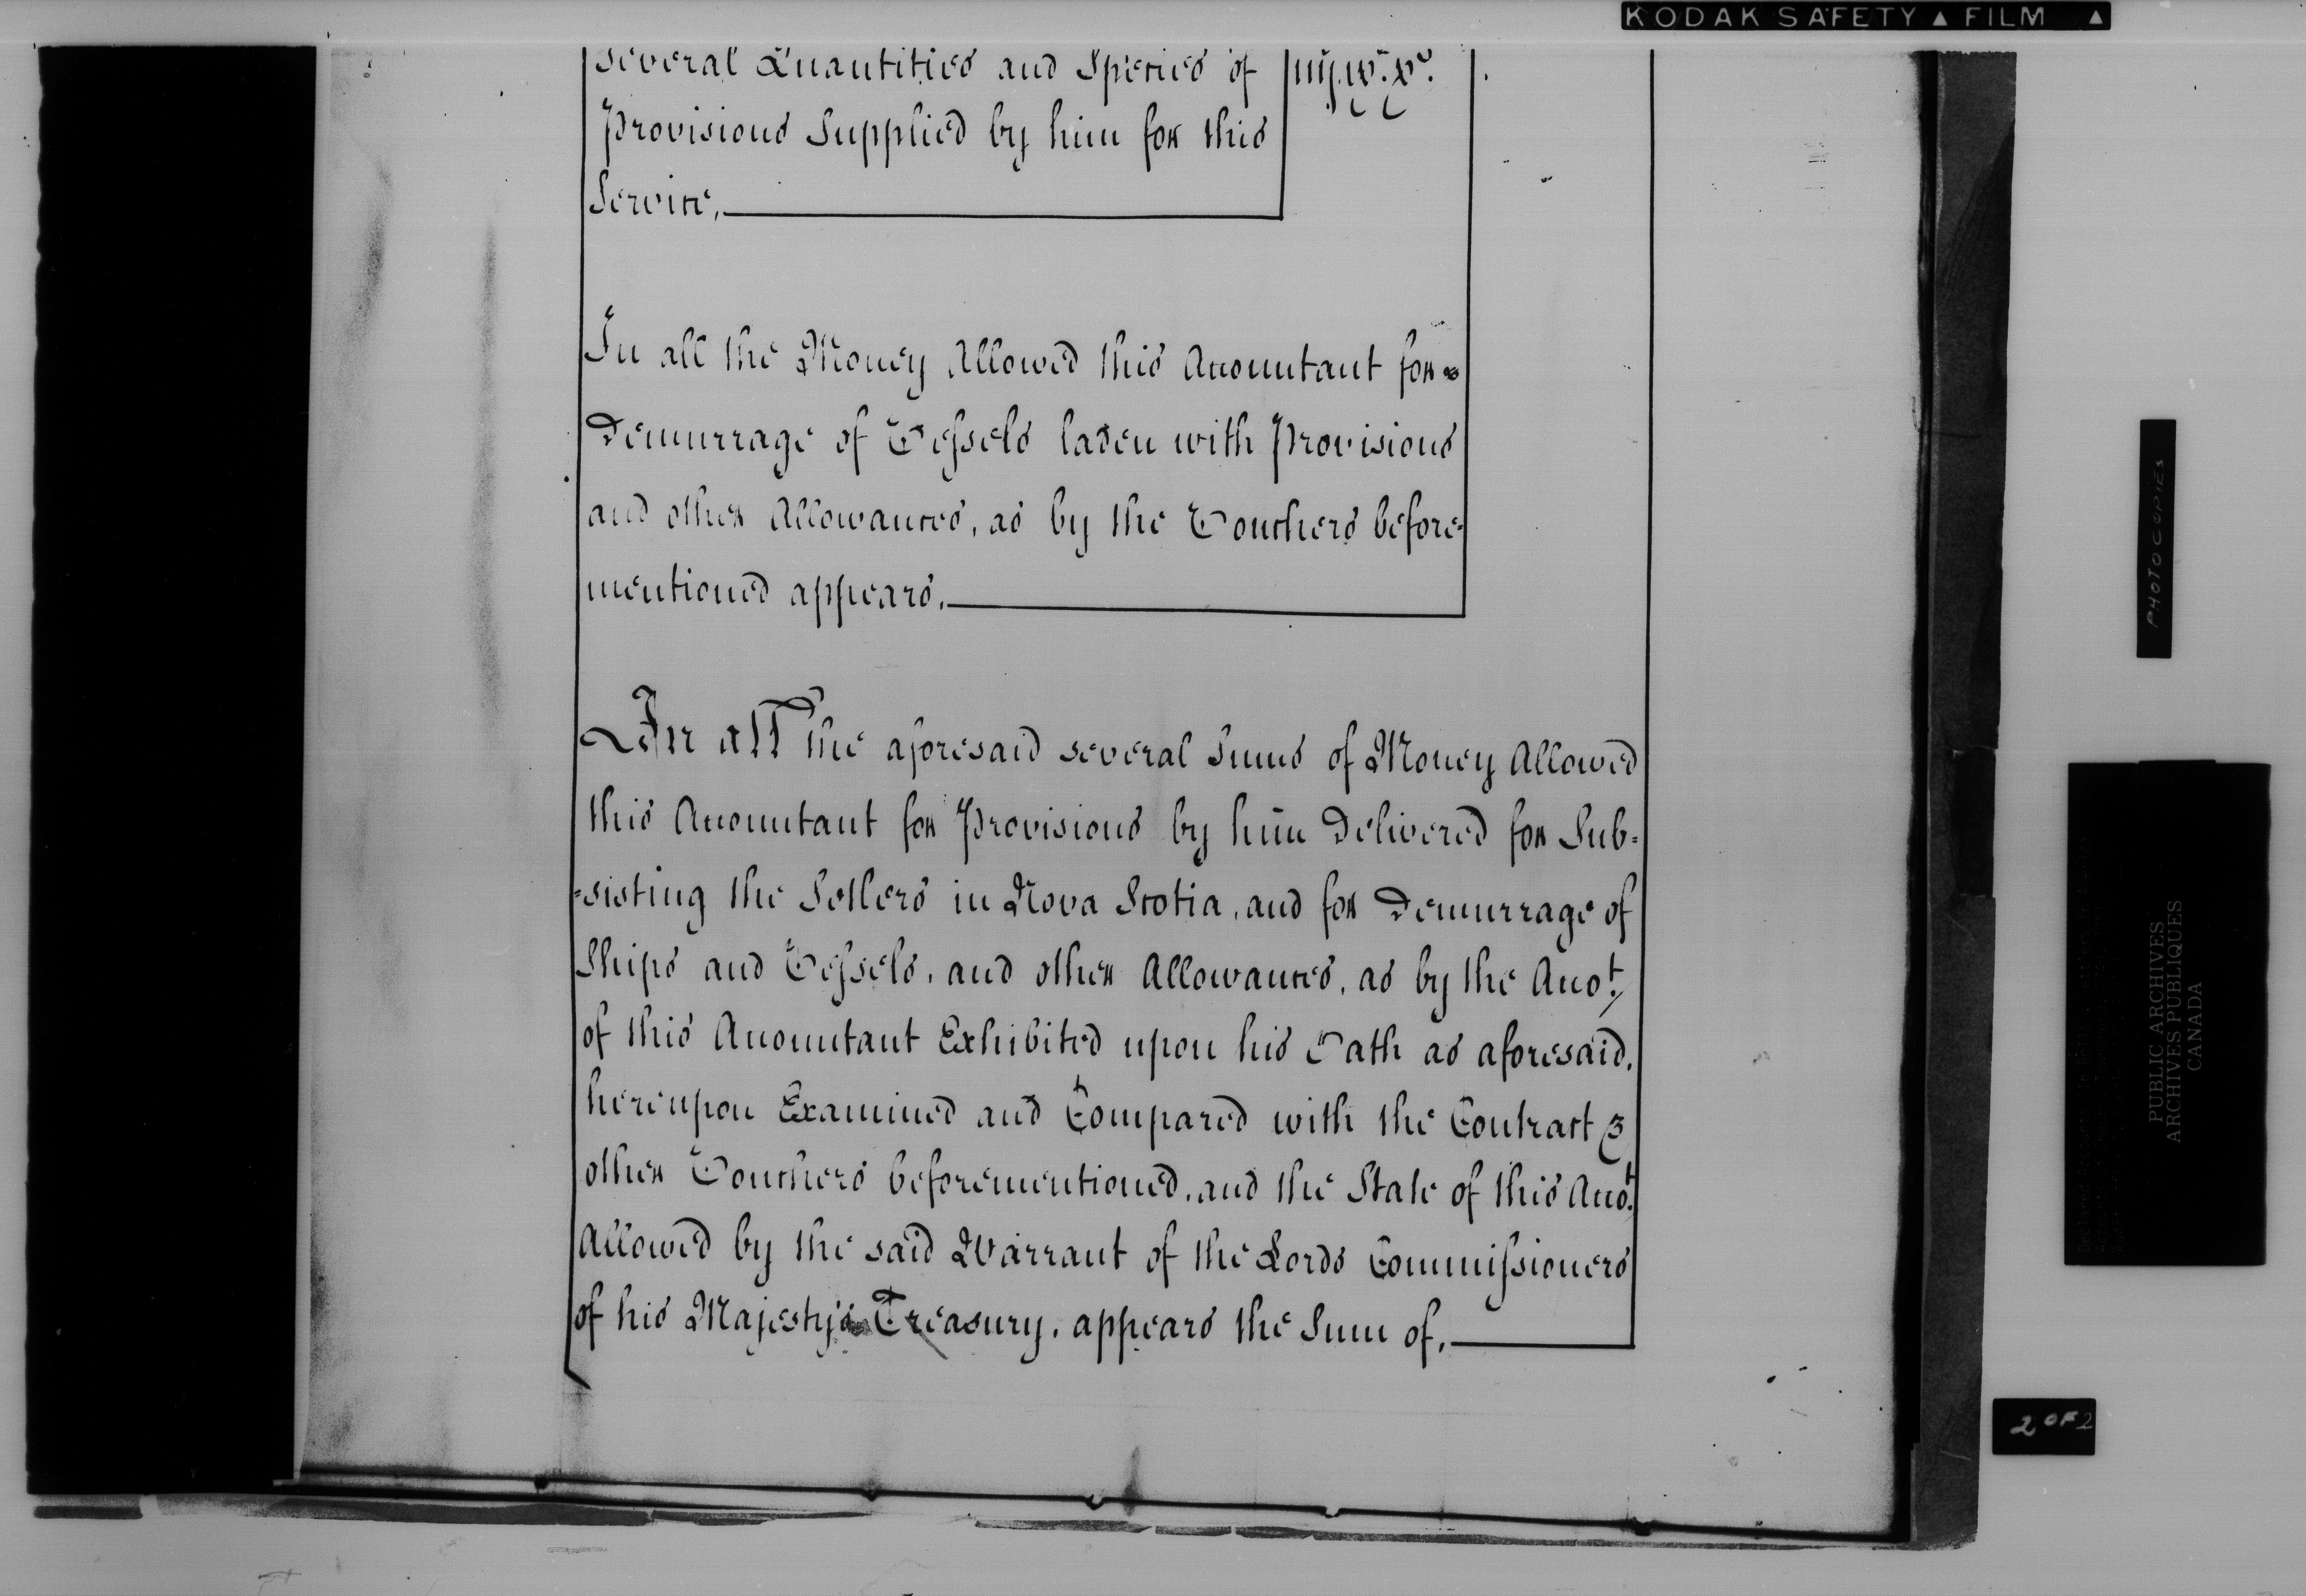 KODAK SAFETY ▲ FILM ▲
several Quantities and Species of
Provisions Supplied by him for this
Service.
In all the Money Allowed this Accountant for
Demurrage of Vessels laden with Provisions
and other Allowances, as by the Vouchers before=
mentioned appears.
In all the aforesaid several Sums of Money Allowed
this Accountant for Provisions by him Delivered for Sub=
=sisting the Setlers in Nova Scotia, and for Demurrage of
Ships and Vessels, and other Allowances, as by the Acco.t
of this Accountant Exhibited upon his Oath as aforesaid,
hereupon Examined and Compared with the Contract &
other Vouchers beforementioned, and the State of this Acco.t
Allowed by the said Warrant of the Lords Commissioners
of his Majesty's Treasury, appears the Sum of,
PHOTOCOPIES
PUBLIC ARCHIVES
ARCHIVES PUBLIQUES
CANADA
2 OF 2